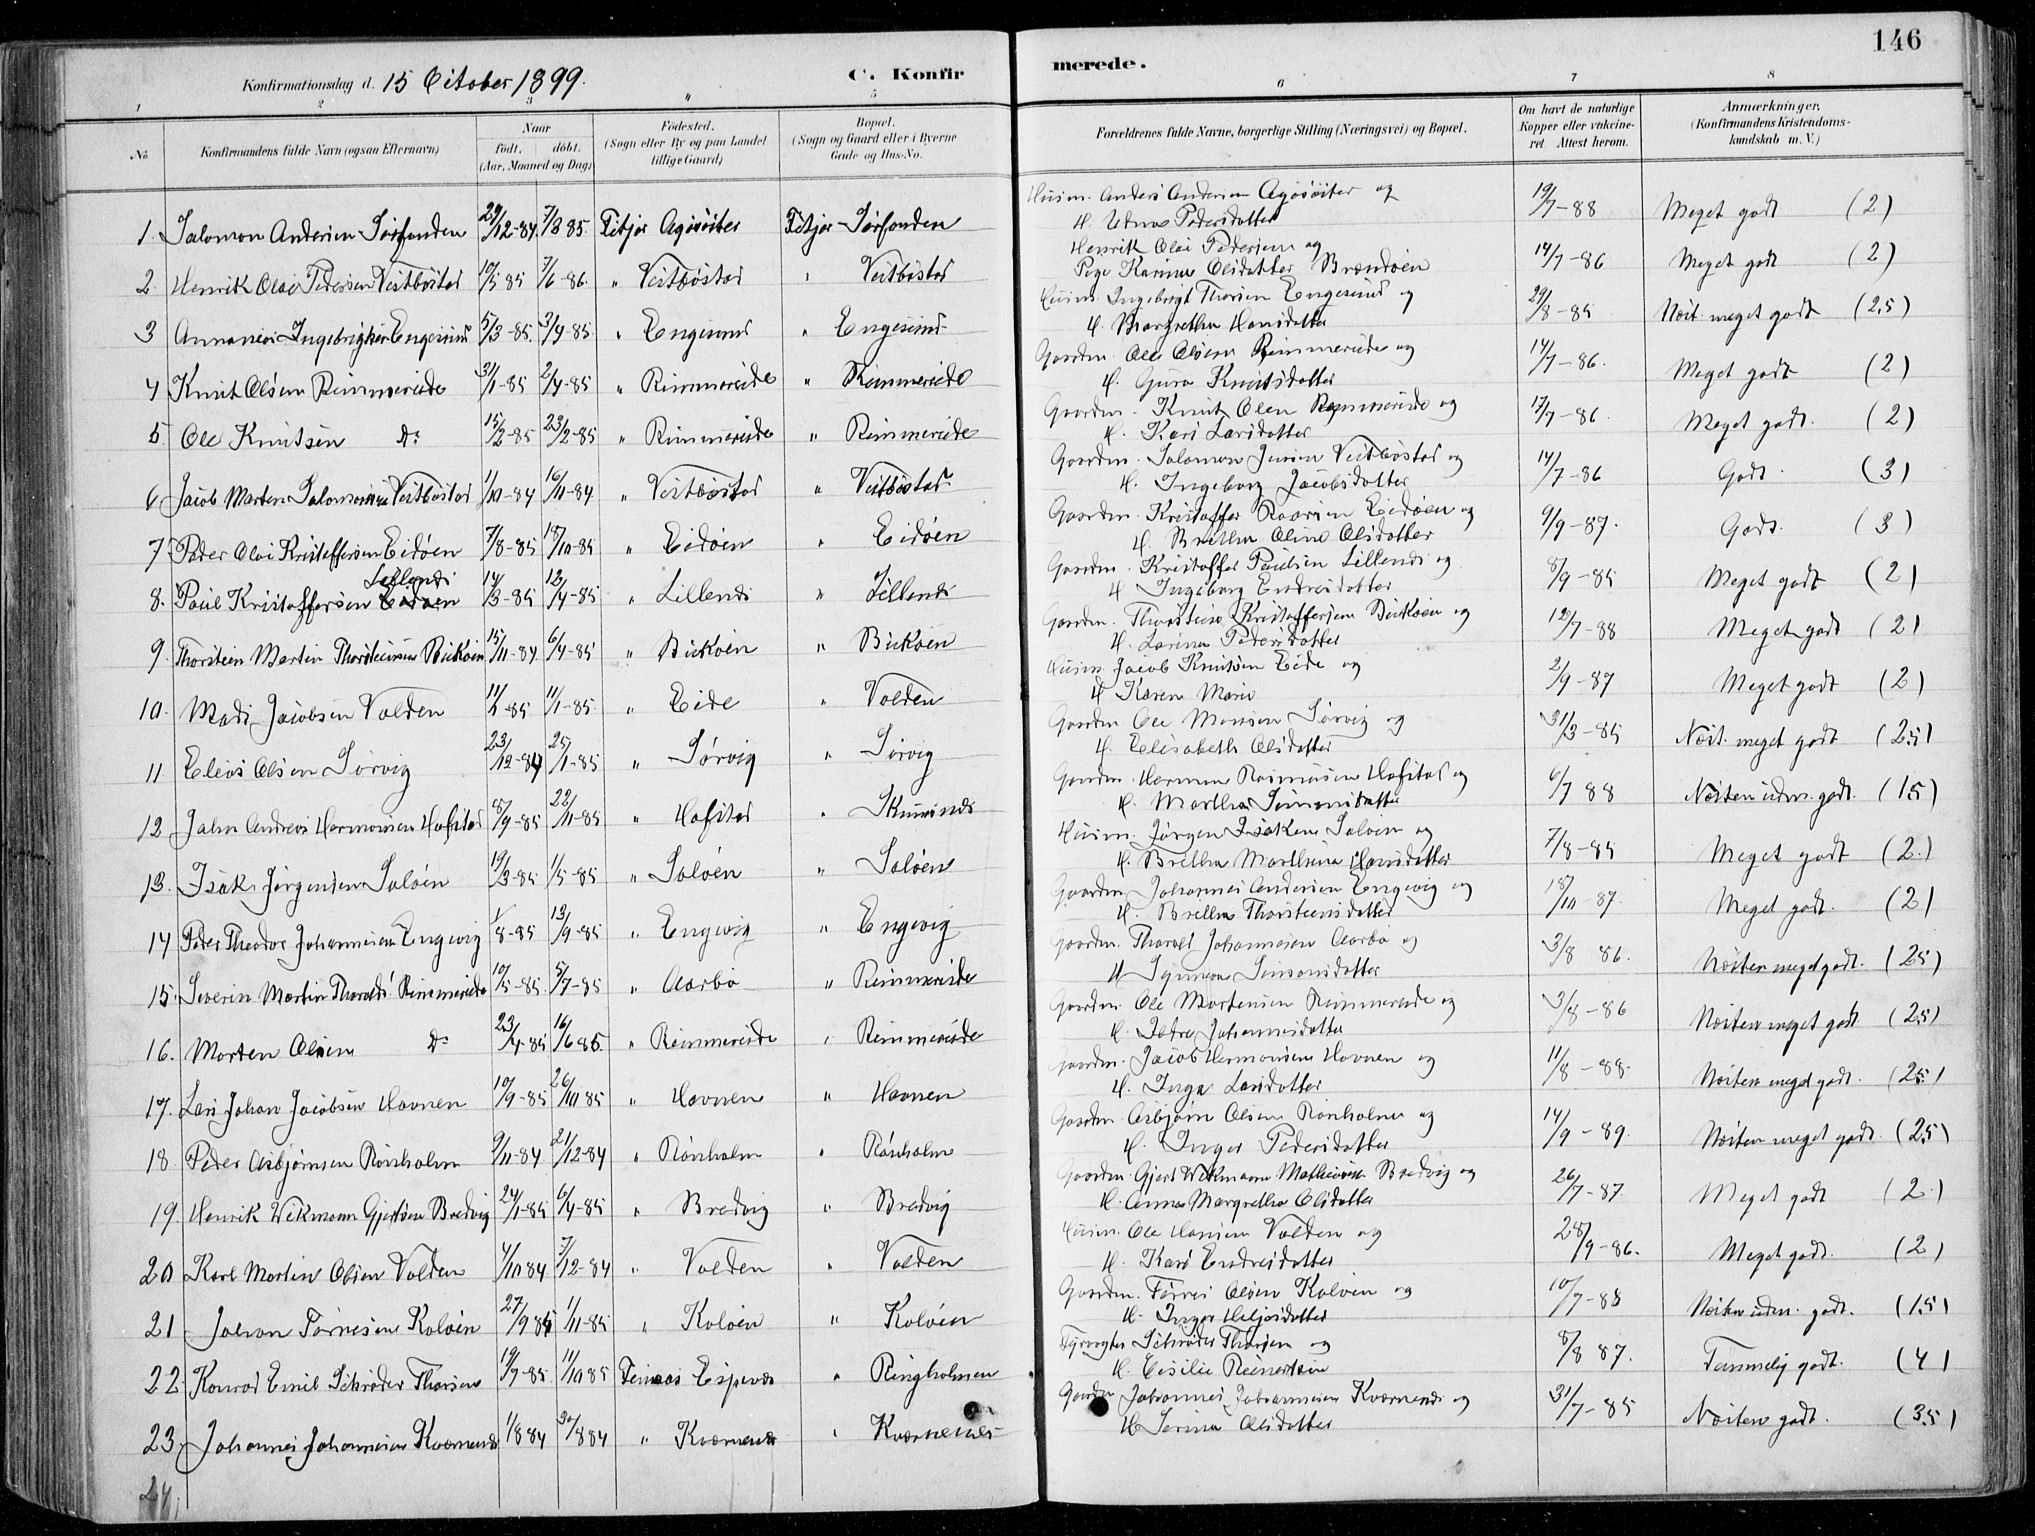 146
Konfirmationsdag d. 15 October 1899.
C. Konfirmerede.
1 2 3 5 6 7 8
No
Konfirmandens fulde Navn (ogsaa Efternavn)
Naar
født. døbt.
(Aar, Maaned og Dag)
Fødested.
(Sogn eller By og paa Landet
tillige Gaard)
Bopæl.
(Sogn og Gaard eller i Byerne
Gade og Hus-No.
Forældrenes fulde Navne, borgerlige Stilling (Næringsvei) og Bopæl.
Om havt de naturlige
Kopper eller vakcine-
ret. Attest herom.
Anmærkninger.
(Konfirmandens Kristendoms-
kundskab m. V.)
1. Salomon Andersen Sørfonden 29/12-84 7/3 85. Fitjar Agdesteter Fitjar Sørfonden Husm. Anders Andersen og H. Pedersdatter 19/7-88 Meget godt (2)
2. Henrik Olai Pedersen Vestbøstad 10/5 85 7/6-86. " Vestbøstad " Vestbøstad Henrik Olai Pedersen og Karina Olsdatter Brandøen 14/7-86 Meget godt (2)
3 Ananias Ingebrigtsen Engesund 5/3-85. 3/4-85. " Engesund " Engesund Husm. Ingebrigt Thorsen Engesund og H. Margretha Hansdatter 29/8-85 Næst. meget godt (2,5)
4 Knut Olsen Rimmereide 31/1-85 2/4-85 " Rimmereide " Rimmereide Gaardm. Ole Olsen Rimmereide og H. Guro Knutsdatter 14/7-86. Meget godt (2)
5. Ole Knutsen do 15/2-85 23/2-85 " Rimmereide " Rimmereide Gaardm. Knut Olsen Rimmereide og H. Kari Larsdatter 17/7-86. Meget godt. (2)
6 Jacob Marten Salomonsen Vestbøstad 1/10-84 16/11-84 " Vestbøstad " Vestbøstad Gaardm. Salomon Jensen Vestbøstad og H. Ingeborg Jacobsdatter 14/7-86 Godt. (3)
7 Peder Olai Kristoffersen Eidøen 7/8-85 18/10-85 " Eidøen " Eidøen Gaardm. Kristoffer Eidøen og H. Bretha Oline Olsdatter 9/9-87. Godt. (3)
8. Paul Kristoffersen Lillenæs 14/3-85 12/4-85 " Lillenæs " Lillenæs Gaardm. Kristoffer Paulsen Lillenæs og H. Ingeborg Endresdatter 8/9-85 Meget godt (2)
9. Thorstein Martin Thorsteinsen Bukøen 15/11-84 6/4-85 " Bukøen " Bukøen Gaardm. Thorstein Kristoffersen Bukøen og H. Larina Pedersdatter 12/7-88 Meget godt (2)
10. Mads Jacobsen Volden 11/1-85 11/1-85. " Eide " Volden Husm. Jacob Knutsen Eide og H. Karen Marie 2/9-87 Meget godt (2)
11 Elias Olsen Sørvig 23/12-84 25/1-85 " Sørvig " Sørvig Gaardm. Ole Monsen Sørvig og H. Elisabeth Olsdatter 31/3-85 Næst. meget godt (2,5)
12 John Andreas Hermonsen Hafstad 8/9-85 22/11-85 " Hafstad " Gaardm. Herman Rasmusen Hafstad og H. Martha Simonsdatter 6/7 88 Næsten udm. godt. (1,5)
13. Isak Jørgensen Soløen 19/3-85 1/5-85 " Soløen " Soløen Husm. Jørgen Isaksen Soløen og H. Bretha Marthina Hansdatter 7/8-85 Meget godt (2.)
14 Peder Theodor Johannesen Engevig 1/8-85 13/9-85 " Engevig " Engevig Gaardm. Johannes Andersen Engevig og H. Bretha Thorsteinsdatter 18/10-87. Meget godt. (2)
15. Severin Martin Rimmereide 10/5-85. 5/7-85 " Aarbø " Rimmereide Gaardm. Thorvald Johannesen Aarbø og H. Synneva Simonsdatter 3/8 86. Næsten meget godt. (2,5)
16. Morten Olsen do 23/4-85 16/6 85. " Rimmereide " Rimmereide Gaardm. Ole Mortensen Rimmereide og H. Johannesdatter 3/8-86 Næsten meget godt (2,5)
17. Lars Johan Jacobsen Havnen 10/9-85 26/10 85 " Havnen " Havnen Gaardm. Jacob Hermonsen Havnen og H. Inga Larsdatter 11/8-88. Næsten meget godt. (2,5)
18 Peder Asbjørnsen Rønholm 9/11-84 21/12-84 " Rønholm " Rønholm Gaardm. Asbjørn Olsen Rønholm og H. Inger Pedersdatter 14/9-89. Næsten meget godt. (2,5)
19. Henrik Wikmann Gjertsen Bredvig 24/1-85 6/4-85 " Bredvig " Bredvig Gaardm. Gjert Wikmann Mathiesen Bredvig og H. Anna Margretha Olsdatter 26/7-87. Meget godt (2.)
20 Karl Martin Olsen Volden 4/10 84 7/12-84 " Volden " Volden Husm. Ole Hansen Volden og H. Kari Endresdatter 28/9-86. Meget godt. (2)
21 Johan Tørresen Koløen 27/9 84 1/11-85 " Koløen " Koløen Gaardm. Tørris Olsen Koløen og H. Inger Heljesdatter 10/7-88 Næsten udm. godt. (1,5)
22. Konrad Emil Schrøder Thorsen 19/7-85. 11/10 85 Finaas Espevær " Ringholmen Fyrvogter Schrøder Thorsen og H. Cesilie Reinertsen 8/8 87. Temmelig godt. (4)
23. Johannes Johannesen Kværnenæs 1/8 84 30/8 84 " Kværnenæs " Kværnenes Gaardm. Johannes Johannesen Kværnenæs og H. Serina Olsdatter 31/7-85 Næsten godt. (3,5)
24.